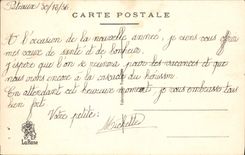 Puteaux 30/12/36
CARTE POSTALE
A l'occasion de la nouvelle année, je viens vous offrir
mes vœux de santé et de bonheur.
J'espère que l'on se réunira, pour des vacances et que
nous irons encore à la cascade du
En attendant cet heureux moment, je vous embrasse tous
bien fort.
Votre petite:
Michelle
La Rose